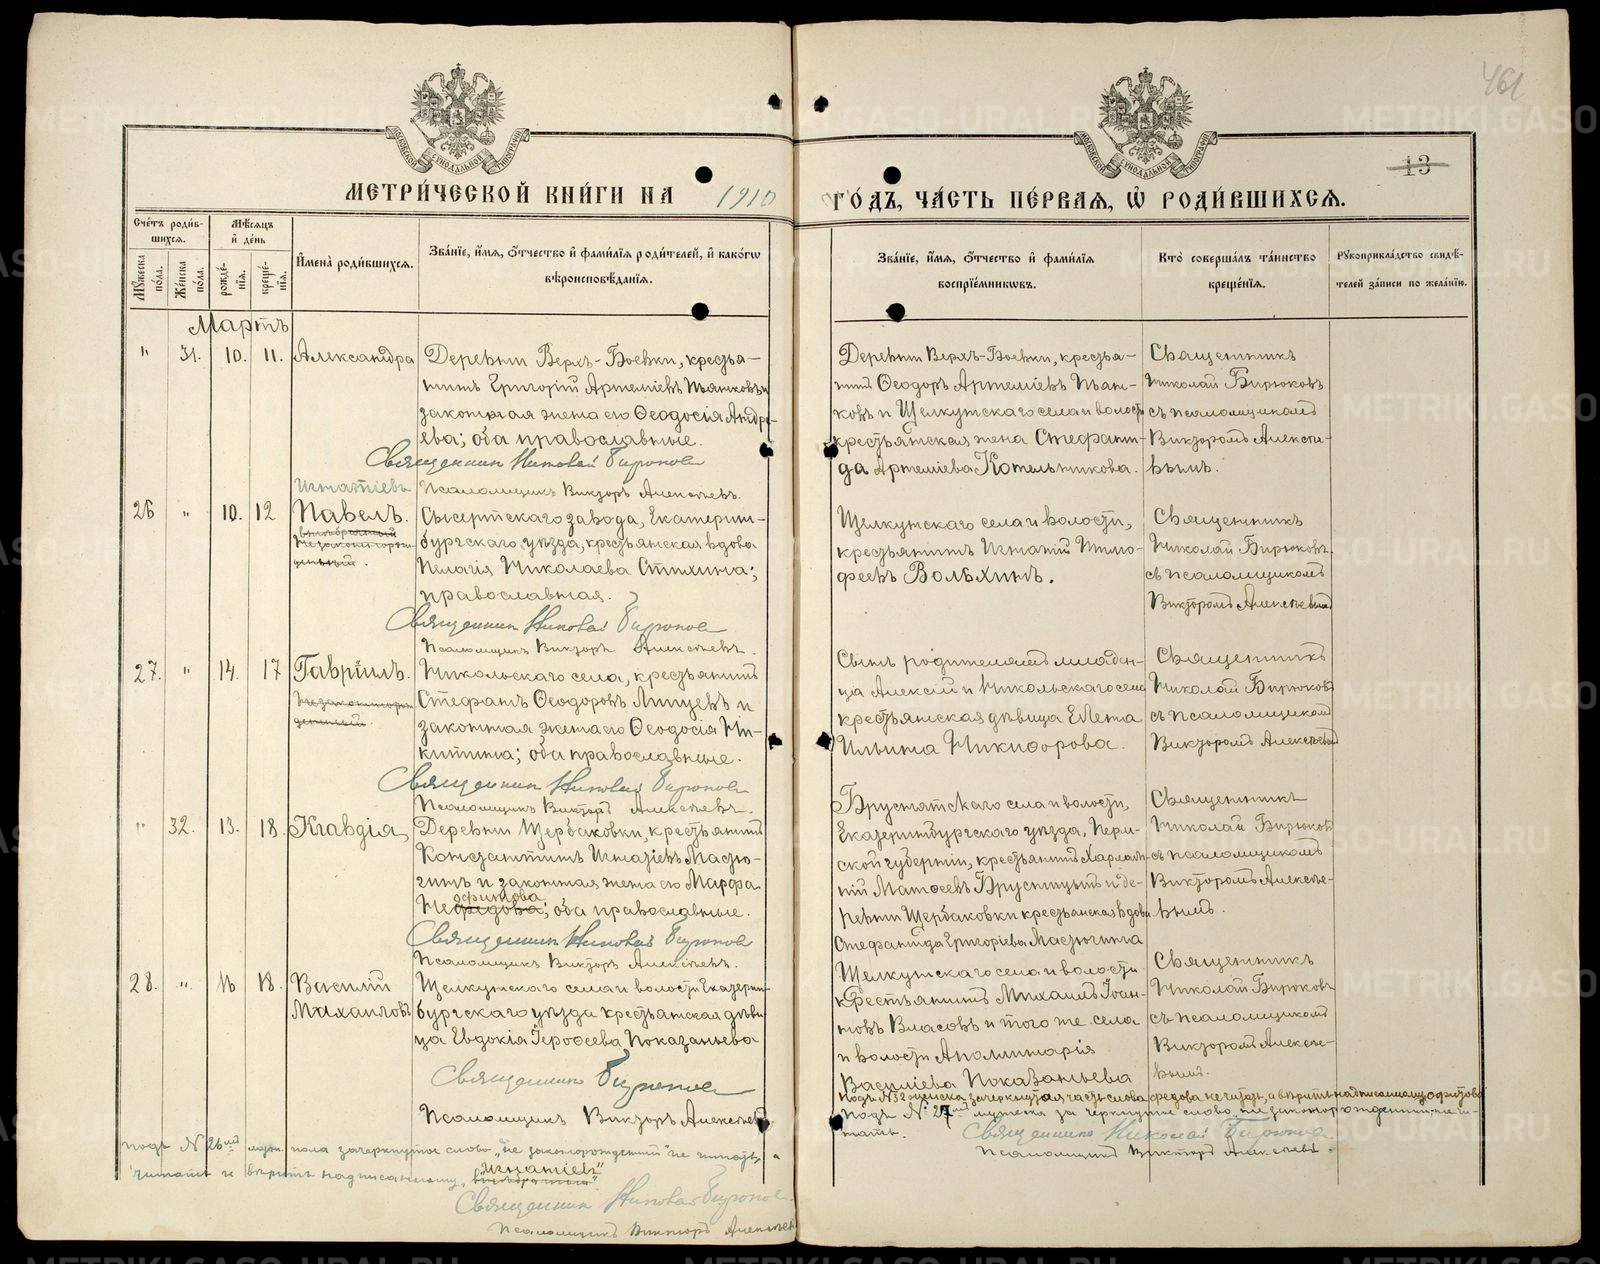 461
13
МОСКОВСКОЙ СѴНОДАЛЬНОЙ ТИПОГРАФІИ
МОСКОВСКОЙ СѴНОДАЛЬНОЙ ТИПОГРАФІИ
МЕТРИ́ЧЕСКОЙ КНИ́ГИ НА 1910 ГО́ДЪ, ЧА́СТЬ ПЕ́РВАЯ, Ѡ РОДИ́ВШИХСЯ.
Сче́тъ роди́в-
шихся.
Мꙋ́жеска по́ла.
Же́нска по́ла.
Мѣ́сяцъ
и҆ де́нь
рожде́-
нїя.
креще́-
нїя.
И҆мена̀ роди́вшихся.
Зва́нїе, и҆́мя, ѻ҆́тчество и҆ фами́лїя роди́телей, и҆ како́гѡ
вѣроисповѣ́данїя.
Зва́нїе, и҆́мя, ѻ҆́тчество и҆ фами́лїя
воспрїе́мникѡвъ.
Кто̀ соверша́лъ та́инство
креще́нїя.
Рꙋкоприкла́дство свидѣ́-
телей за́писи по жела́нїю.
Мартъ
" 31. 10. 11. Александра
Деревни Верхъ-Боевки, крестья-
нинъ Григорій Артеміевъ Пьянковъ и
законная жена его Ѳеодосія Андре-
ева; оба православные.
Священник Николай Бирюков
Псаломщикъ Викторъ Алексѣевъ.
Деревни Верхъ-Боевки, крестья-
нинъ Ѳеодоръ Артеміевъ Пьян-
ковъ и Щелкунскаго села и волости
крестьянская жена Стефани-
да Артеміева Котельникова.
Священникъ
Николай Бирюковъ
съ псаломщикомъ
Викторомъ Алексѣе-
вымъ.
Игнатіевъ
26 " 10. 12 Павелъ.
незаконнорож-
денный.
Сысертскаго завода, Екатерин-
бургскаго уѣзда, крестьянская вдова
Пелагія Николаева Стихина;
православная.
Священник Николай Бирюков
Псаломщикъ Викторъ Алексѣевъ.
Щелкунскаго села и волости,
крестьянинъ Игнатій Тимо-
феевъ Волѣхинъ.
Священникъ
Николай Бирюковъ
съ псаломщикомъ
Викторомъ Алексѣевымъ
27. " 14. 17 Гавріилъ.
незаконнорож-
денный.
Никольскаго села, крестьянинъ
Стефанъ Ѳеодоровъ Липцевъ и
законная жена его Ѳеодосія Ни-
китина; оба православные.
Священник Николай Бирюков
Псаломщикъ Викторъ Алексѣевъ.
Сынъ родителямъ младен-
ца Алексій и Никольскаго села
крестьянская дѣвица Елена
Ильина Никифорова.
Священникъ
Николай Бирюковъ
съ псаломщикомъ
Викторомъ Алексѣевымъ
" 32. 13. 18. Клавдія,
Деревни Щербаковки, крестьянинъ
Константинъ Игнатіевъ Мастю-
гинъ и законная жена его Марфа
офитова
Нефедова; оба православные.
Священник Николай Бирюков
Псаломщикъ Викторъ Алексѣевъ.
Бруснятскаго села и волости,
Екатеринбургскаго уѣзда, Перм-
ской губерніи, крестьянинъ Харлам-
пій Матѳеевъ Брусницынъ и де-
ревни Щербаковки крестьянская вдова
Стефанида Григоріева Мастюгина
Священникъ
Николай Бирюковъ
съ псаломщикомъ
Викторомъ Алексѣе-
вымъ.
28. " 16 18. Василій
Михаиловъ
Щелкунскаго села и волости Екатерин-
бургскаго уѣзда крестьянская дѣви-
ца Евдокія Іероѳеева Показаньева
Священник Бирюков
Псаломщикъ Викторъ Алексѣевъ
Щелкунскаго села и волости
крестьянинъ Михаилъ Іоан-
новъ Власовъ и того же села
и волости Аполлинарія
Василіева Показаньева
Священникъ
Николай Бирюковъ
съ псаломщикомъ
Викторомъ Алексѣе-
вымъ.
подъ № 32 женска зачеркнутая часть слова федова не читать, а вѣрить надписанному офитова
подъ № 27мъ мужска зачеркнутое слово „незаконнорожденный" не чи-
тать.
Священникъ Николай Бирюков.
Псаломщикъ Викторъ Алексѣевъ.
подъ № 26мъ муж. пола зачеркнутое слово „незаконорожденный" не читать, а
читать и вѣрить надписанному „Игнатіевъ"
Священник Николай Бирюков
Псаломщикъ Викторъ Алексѣевъ
METRIKI.GASO-URAL.RU